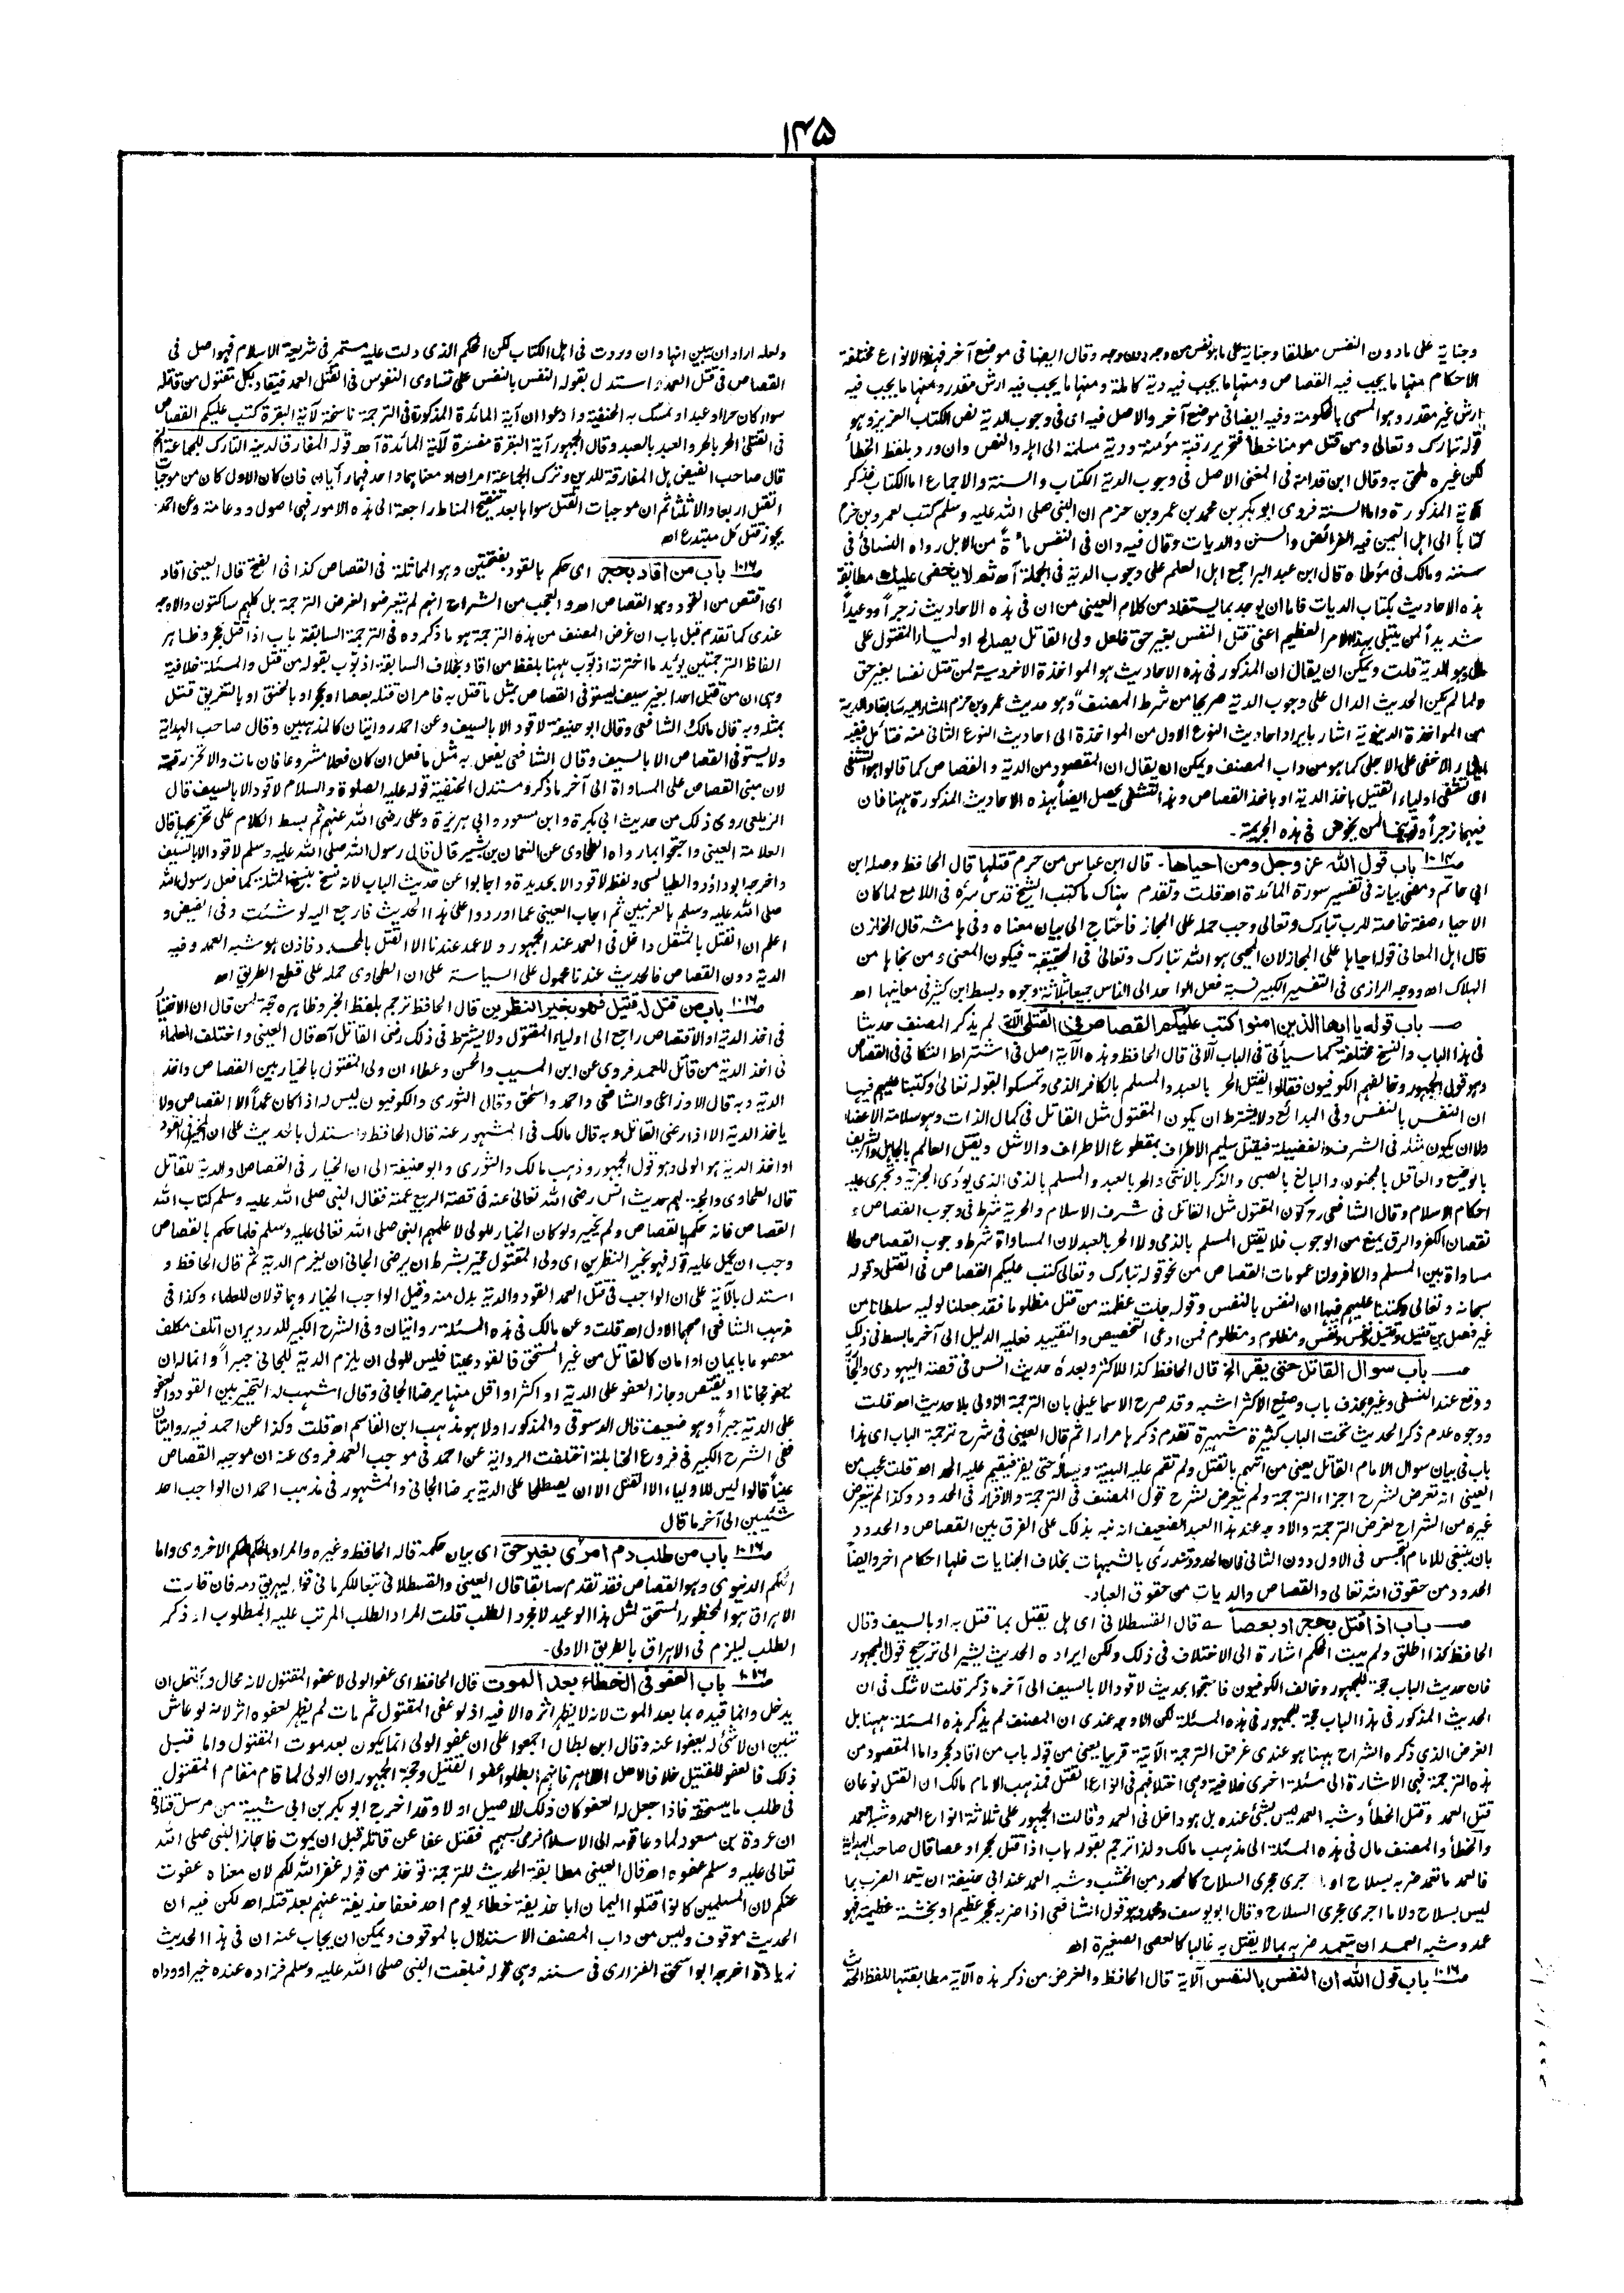 ۱۴۵
وجناية على مادون النفس مطلقا وجناية على ما هو نفس من وجه دون وجه وقال ايضا فى موضع آخر فهذه الانواع مختلفة
الاحكام منها ما يجب فيه القصاص ومنها ما يجب فيه دية كاملة ومنها ما يجب فيه ارش مقدر ومنها ما يجب فيه
ارش غير مقدر وهو المسمى بالحكومة وفيه ايضا فى موضع آخر والاصل فيه اى فى وجوب الدية نص الكتاب العزيز وهو
قوله تبارك وتعالى ومن قتل مومنا خطأ فتحرير رقبة مؤمنة ودية مسلمة الى اهله والنص وان ورد بلفظ الخطأ
لكن غيره ملحق به وقال ابن قدامة فى المغنى الاصل فى وجوب الدية الكتاب والسنة والاجماع اما الكتاب فذكر
الآية المذكورة واما السنة فروى ابو بكر بن محمد بن عمرو بن حزم ان النبى صلى الله عليه وسلم كتب لعمرو بن حزم
كتابا الى اهل اليمن فيه الفرائض والسنن والديات وقال فيه وان فى النفس مائة من الابل رواه النسائى فى
سننه ومالك فى مؤطاه قال ابن عبد البر اجمع اهل العلم على وجوب الدية فى الجملة آه ثم لا يخفى عليك مطابقة
هذه الاحاديث بكتاب الديات فاما ان يوجد بما يستفاد من كلام العينى من ان فى هذه الاحاديث زجراً ووعيداً
شديداً لمن يبتلى بهذا الامر العظيم اعنى قتل النفس بغير حق فلعل ولى القاتل يصالح اولياء المقتول على
مال وهو الدية قلت ويمكن ان يقال ان المذكور فى هذه الاحاديث هو المواخذة الاخروية لمن قتل نفسا بغير حق
ولما لم يكن الحديث الدال على وجوب الدية صريحا من شرط المصنف وهو حديث عمرو بن حزم المشار اليه سابقا والدية
من المواخذة الدنيوية اشار بايراد احاديث النوع الاول من المواخذة الى احاديث النوع الثانى منه فتأمل ففيه
ايثار الاخفى على الاجلى كما هو من داب المصنف ويمكن ان يقال ان المقصود من الدية والقصاص كما قالوا هو التشفى
اى تشفى اولياء القتيل باخذ الدية او باخذ القصاص وهذا التشفى يحصل ايضاً بهذه الاحاديث المذكورة ههنا فان
فيها زجراً وتوبيخا لمن يخوض فى هذه الجريمة۔
ص۱۰۱۴ باب قول الله عز وجل ومن احياها۔ قال ابن عباس من حرم قتلها قال الحافظ وصله ابن
ابى حاتم ومضى بيانه فى تفسير سورة المائدة اھ قلت وتقدم هناك ما كتب الشيخ قدس سره فى اللامع لما كان
الاحياء صفة خاصة للرب تبارك وتعالى وجب حمله على المجاز فاحتاج الى بيان معناه وفى هامشه قال الخازن
قال اهل المعانى قوله احياها على المجاز لان المحيى هو الله تبارك وتعالى فى الحقيقة فيكون المعنى ومن نجاها من
الهلاك اھ ووجه الرازى فى التفسير الكبير نسبة فعل الواحد الى الناس جميعا بثلاثة وجوه وبسط ابن كثير فى معانيها اھ
ص باب قوله يا ايها الذين امنوا كتب عليكم القصاص فى القتلى الآية لم يذكر المصنف حديثا
فى هذا الباب والنسخ مختلفة كما سيأتى فى الباب الآتى قال الحافظ وهذه الآية اصل فى اشتراط التكافئ فى القصاص
وهو قول الجمهور وخالفهم الكوفيون فقالوا يقتل الحر بالعبد والمسلم بالكافر الذمى وتمسكوا بقوله تعالى وكتبنا عليهم فيها
ان النفس بالنفس وفى البدائع ولا يشترط ان يكون المقتول مثل القاتل فى كمال الذات وهو سلامة الاعضاء
ولا ان يكون مثله فى الشرف والفضيلة فيقتل سليم الاطراف بمقطوع الاطراف والاشل ويقتل العالم بالجاهل والشريف
بالوضيع والعاقل بالمجنون والبالغ بالصبى والذكر بالانثى والحر بالعبد والمسلم بالذمى الذى يؤدى الجزية وتجرى عليه
احكام الاسلام وقال الشافعى رح كون المقتول مثل القاتل فى شرف الاسلام والحرية شرط فى وجوب القصاص و
نقصان الكفر والرق يمنع من الوجوب فلا يقتل المسلم بالذمى ولا الحر بالعبد لان المساواة شرط وجوب القصاص ولا
مساواة بين المسلم والكافر ولنا عمومات القصاص من نحو قوله تبارك وتعالى كتب عليكم القصاص فى القتلى وقوله
سبحانه وتعالى وكتبنا عليهم فيها ان النفس بالنفس وقوله جلت عظمته من قتل مظلوما فقد جعلنا لوليه سلطانا من
غير فصل بين قتيل وقتيل ونفس ونفس ومظلوم ومظلوم فمن ادعى التخصيص والتقييد فعليه الدليل الى آخر ما بسط فى ذلك
ص باب سوال القاتل حتى يقر الخ قال الحافظ كذا للاكثر وبعده حديث انس فى قصة اليهودى والجارية
ووقع عند النسفى وغيره بحذف باب وصنيع الاكثر اشبه وقد صرح الاسماعيلى بان الترجمة الاولى بلا حديث اھ قلت
ووجوه عدم ذكر الحديث تحت الباب كثيرة شهيرة تقدم ذكرها مرارا ثم قال العينى فى شرح ترجمة الباب اى هذا
باب فى بيان سوال الامام القاتل يعنى من اتهم بالقتل ولم تقم عليه البينة ويسأله حتى يقر فيقيم عليه الحد اھ قلت عجب من
العينى انه تعرض لشرح اجزاء الترجمة ولم يتعرض لشرح قول المصنف فى الترجمة والاقرار فى الحدود وكذا لم يتعرض
غيره من الشراح لغرض الترجمة والاوجه عند هذا العبد الضعيف انه نبه بذلك على الفرق بين القصاص والحدود
بان ينبغى للامام التجسس فى الاول دون الثانى فان الحدود تندرئ بالشبهات بخلاف الجنايات فلها احكام اخر وايضاً
الحدود من حقوق الله تعالى والقصاص والديات من حقوق العباد۔
ص باب اذا قتل بحجر او بعصا قال القسطلانى اى هل يقتل بما قتل به او بالسيف وقال
الحافظ كذا اطلق ولم يبت الحكم اشارة الى الاختلاف فى ذلك ولكن ايراده الحديث يشير الى ترجيح قول الجمهور
فان حديث الباب حجة للجمهور وخالف الكوفيون فاحتجوا بحديث لا قود الا بالسيف الى آخره ذكر قلت لا شك فى ان
الحديث المذكور فى هذا الباب حجة للجمهور فى هذه المسئلة لكن الاوجه عندى ان المصنف لم يذكر هذه المسئلة ههنا بل
الغرض الذى ذكره الشراح ههنا هو عندى غرض الترجمة الآتية قريبا يعنى من قوله باب من اقاد بحجر واما المقصود من
هذه الترجمة فهى الاشارة الى مسئلة اخرى خلافية وهى اختلافهم فى انواع القتل فمذهب الامام مالك ان القتل نوعان
قتل العمد وقتل الخطأ وشبه العمد ليس بشئ عنده بل هو داخل فى العمد وقالت الجمهور على ثلاثة انواع العمد وشبه العمد
والخطأ والمصنف مال فى هذه المسئلة الى مذهب مالك ولذا ترجم بقوله باب اذا قتل بحجر او عصا قال صاحب الهداية
فالعمد ما تعمد ضربه بسلاح او ما جرى مجرى السلاح كالمحدد من الخشب وشبه العمد عند ابى حنيفة ان يتعمد الضرب بما
ليس بسلاح ولا ما اجرى مجرى السلاح وقال ابو يوسف ومحمد وهو قول الشافعى اذا ضربه بحجر عظيم او بخشبة عظيمة فهو
عمد وشبه العمد ان يتعمد ضربه بما لا يقتل به غالبا كالعصى الصغيرة اھ
ص۱۰۱۶ باب قول الله ان النفس بالنفس الآية قال الحافظ والغرض من ذكر هذه الآية مطابقتها للفظ الحديث
ولعله اراد ان يبين انها وان وردت فى اهل الكتاب لكن الحكم الذى دلت عليه مستمر فى شريعة الاسلام فهو اصل فى
القصاص فى قتل العمد واستدل بقوله النفس بالنفس على تساوى النفوس فى القتل العمد فيقاد بكل مقتول من قاتله
سواء كان حرا او عبدا وتمسك به الحنفية وادعوا ان آية المائدة المذكورة فى الترجمة ناسخة لآية البقرة كتب عليكم القصاص
فى القتلى الحر بالحر والعبد بالعبد وقال الجمهور آية البقرة مفسرة لآية المائدة آھ قوله المفارق لدينه التارك للجماعة الخ
قال صاحب الفيض هل المفارقة للدين وترك الجماعة امران او معناهما واحد فهما رأيان فان كان الاول كان من موجبات
القتل اربعا والا ثلثا ثم ان موجبات القتل سواها بعد تنقيح المناط راجعة الى هذه الامور فهى اصول ودعامة وعن احمد
يجوز قتل كل مبتدع اھ
ص۱۰۱۶ باب من اقاد بحجر اى حكم بالقود بفتحتين وهو المماثلة فى القصاص كذا فى الفتح قال العينى اقاد
اى اقتص من القود وهو القصاص اھ والعجب من الشراح انهم لم يتعرضوا لغرض الترجمة بل كلهم ساكتون والاوجه
عندى كما تقدم قبل باب ان غرض المصنف من هذه الترجمة هو ما ذكروه فى الترجمة السابقة باب اذا قتل بحجر وظاهر
الفاظ الترجمتين يؤيد ما اخترته اذ بوب ههنا بلفظ من اقاد بخلاف السابقة اذ بوب بقوله من قتل والمسئلة خلافية
وهى ان من قتل احدا بغير سيف يستوفى القصاص بمثل ما قتل به فامر ان قتله بعصا او بحجر او بالخنق او بالتغريق قتل
بمثله وبه قال مالك والشافعى وقال ابو حنيفة لا قود الا بالسيف وعن احمد روايتان كالمذهبين وقال صاحب الهداية
ولا يستوفى القصاص الا بالسيف وقال الشافعى يفعل به مثل ما فعل ان كان فعلا مشروعا فان مات والا تحز رقبته
لان مبنى القصاص على المساواة الى آخر ما ذكر ومستدل الحنفية قوله عليه الصلوة والسلام لا قود الا بالسيف قال
الزيلعى روى ذلك من حديث ابى بكرة وابن مسعود وابى هريرة وعلى رضى الله عنهم ثم بسط الكلام على تخريجها قال
العلامة العينى واحتجوا بما رواه الطحاوى عن النعمان بن بشير قال قال رسول الله صلى الله عليه وسلم لا قود الا بالسيف
واخرجه ابو داؤد والطيالسى ولفظه لا قود الا بحديدة واجابوا عن حديث الباب لانه نسخ بنسخ المثلة كما فعل رسول الله
صلى الله عليه وسلم بالعرنيين ثم اجاب العينى عما اوردوا على هذا الحديث فارجع اليه لو شئت وفى الفيض و
اعلم ان القتل بالمثقل داخل فى العمد عند الجمهور ولا عمد عندنا الا القتل بالمحدد فاذن هو شبه العمد وفيه
الدية دون القصاص فالحديث عندنا محمول على السياسة على ان الطحاوى حمله على قطع الطريق اھ
ص۱۰۱۶ باب من قتل له قتيل فهو بخير النظرين قال الحافظ ترجم بلفظ الخبر وظاهره حجة لمن قال ان الاختيار
فى اخذ الدية او الاقتصاص راجع الى اولياء المقتول ولا يشترط فى ذلك رضى القاتل آھ قال العينى واختلف العلماء
فى اخذ الدية من قاتل للعمد فروى عن ابن المسيب والحسن وعطاء ان ولى المقتول بالخيار بين القصاص واخذ
الدية وبه قال الاوزاعى والشافعى واحمد واسحق وقال الثورى والكوفيون ليس له اذا كان عمداً الا القصاص ولا
ياخذ الدية الا اذا رضى القاتل وبه قال مالك فى المشهور عنه قال الحافظ واستدل بالحديث على ان المخير فى القود
او اخذ الدية هو الولى وهو قول الجمهور وذهب مالك والثورى وابو حنيفة الى ان الخيار فى القصاص والدية للقاتل
قال الطحاوى والحجة لهم حديث انس رضى الله تعالى عنه فى قصة الربيع عمته فقال النبى صلى الله عليه وسلم كتاب الله
القصاص فانه حكم بالقصاص ولم يخير ولو كان الخيار للولى لاعلمهم النبى صلى الله تعالى عليه وسلم فلما حكم بالقصاص
وجب ان يحمل عليه قوله فهو بخير النظرين اى ولى المقتول مخير بشرط ان يرضى الجانى ان يغرم الدية ثم قال الحافظ و
استدل بالآية على ان الواجب فى قتل العمد القود والدية بدل منه وقيل الواجب الخيار وهما قولان للعلماء وكذا فى
مذهب الشافعى اصحهما الاول اھ قلت وعن مالك فى هذه المسئلة روايتان وفى الشرح الكبير للدردير ان اتلف مكلف
معصوما بايمان او امان كالقاتل من غير المستحق فالقود عينا فليس للولى ان يلزم الدية للجانى جبراً وانما له ان
يعفو مجانا او يقتص وجاز العفو على الدية او اكثر او اقل منها برضا الجانى وقال اشهب له التخيير بين القود والعفو
على الدية جبراً وهو ضعيف قال الدسوقى والمذكور اولا هو مذهب ابن القاسم اھ قلت وكذا عن احمد فيه روايتان
ففى الشرح الكبير فى فروع الحنابلة اختلفت الرواية عن احمد فى موجب العمد فروى عنه ان موجبه القصاص
عيناً قالوا ليس للاولياء الا القتل الا ان يصطلحا على الدية برضا الجانى والمشهور فى مذهب احمد ان الواجب احد
شئيين الى آخر ما قال
ص۱۰۱۶ باب من طلب دم امرئ بغير حق اى بيان حكمه قاله الحافظ وغيره والمراد الحكم الاخروى واما
الحكم الدنيوى وهو القصاص فقد تقدم سابقا قال العينى والقسطلانى تبعا للكرمانى قوله ليهريق دمه فان قلت
الاهراق هو المحظور المستحق لمثل هذا الوعيد لا مجرد الطلب قلت المراد الطلب المرتب عليه المطلوب او ذكر
الطلب ليلزم فى الاهراق بالطريق الاولى۔
ص۱۰۱۶ باب العفو فى الخطاء بعد الموت قال الحافظ اى عفو الولى لا عفو المقتول لانه محال ويحتمل ان
يدخل وانما قيده بما بعد الموت لانه لا يظهر اثره الا فيه اذ لو عفى المقتول ثم مات لم يظهر لعفوه اثر لانه لو عاش
تبين ان لا شئ له يعفو عنه وقال ابن بطال اجمعوا على ان عفو الولى انما يكون بعد موت المقتول واما قبل
ذلك فالعفو للقتيل خلافا لاهل الظاهر فانهم ابطلوا عفو القتيل وحجة الجمهور ان الولى لما قام مقام المقتول
فى طلب ما يستحقه فاذا جعل له العفو كان ذلك للاصيل اولا وقد اخرج ابو بكر بن ابى شيبة من مرسل قتادة
ان عروة بن مسعود لما دعا قومه الى الاسلام فرمى بسهم فقتل عفا عن قاتله قبل ان يموت فاجاز النبى صلى الله
تعالى عليه وسلم عفوه اھ قال العينى مطابقة الحديث للترجمة توخذ من قوله غفر الله لكم لان معناه عفوت
عنكم لان المسلمين كانوا قتلوا اليمان ابا حذيفة خطاء يوم احد فعفا حذيفة عنهم بعد قتله اھ لكن فيه ان
الحديث موقوف وليس من داب المصنف الاستدلال بالموقوف ويمكن ان يجاب عنه ان فى هذا الحديث
زيادة اخرجه ابو اسحق الفزارى فى سننه وهى قوله فبلغت النبى صلى الله عليه وسلم فزاده عنده خيرا ووداه